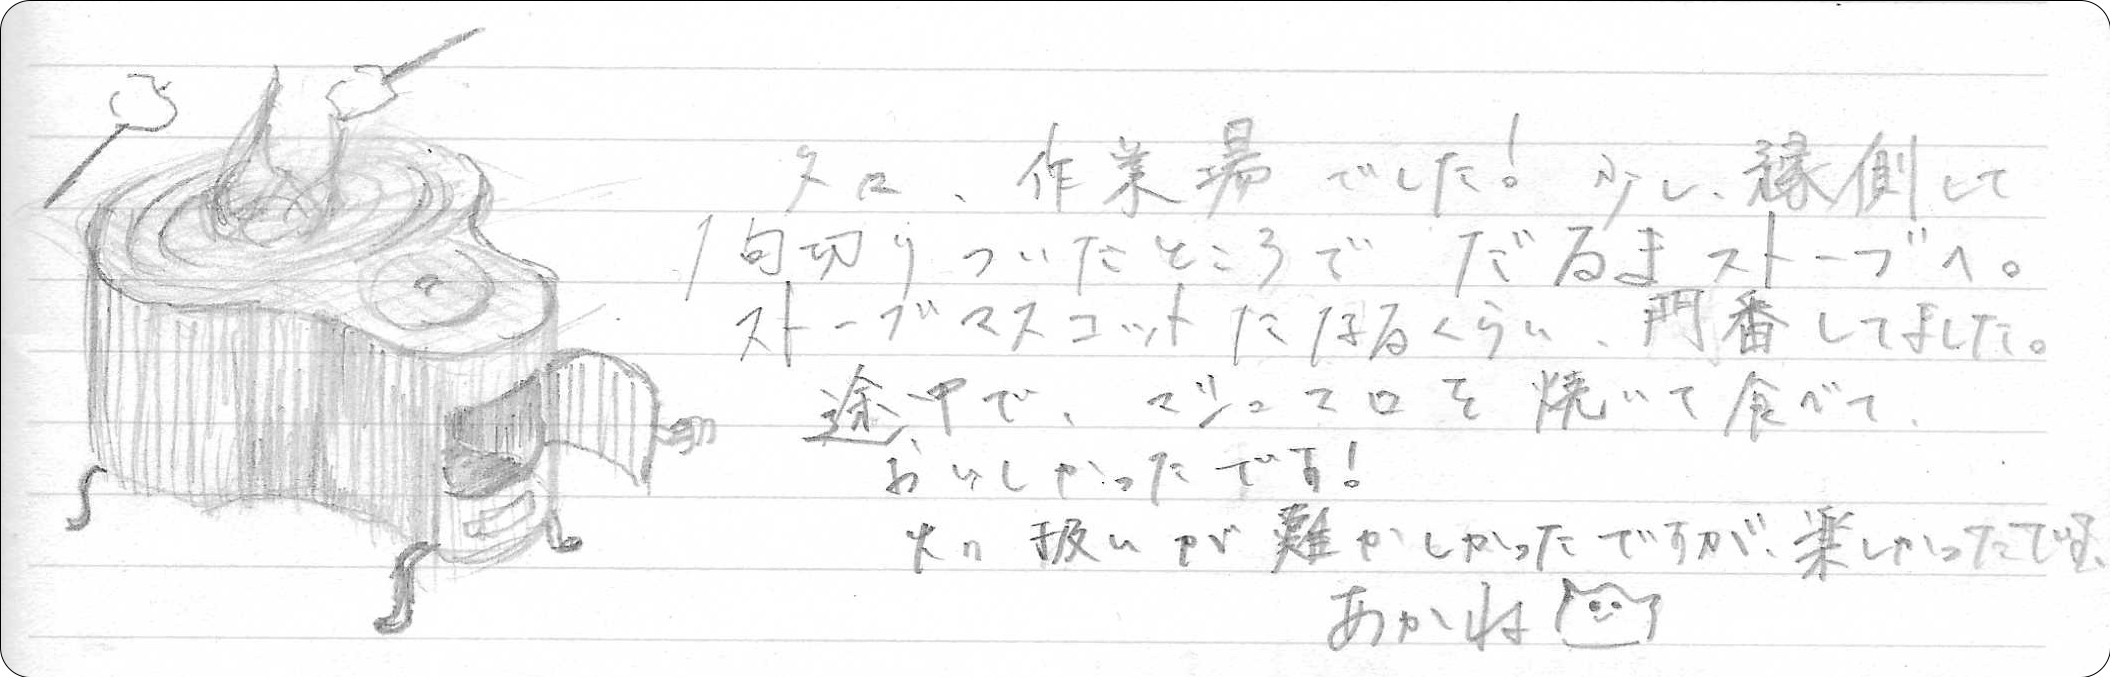 タロ、作業場でした！少し、縁側して
1句切りついたところでだるまストーブへ。
ストーブマスコットたなるくらい、門番してました。
途中で、マシュマロを焼いて食べて、
おいしかったです！
火の扱いが難かしかったですが、楽しかったです、
あかね